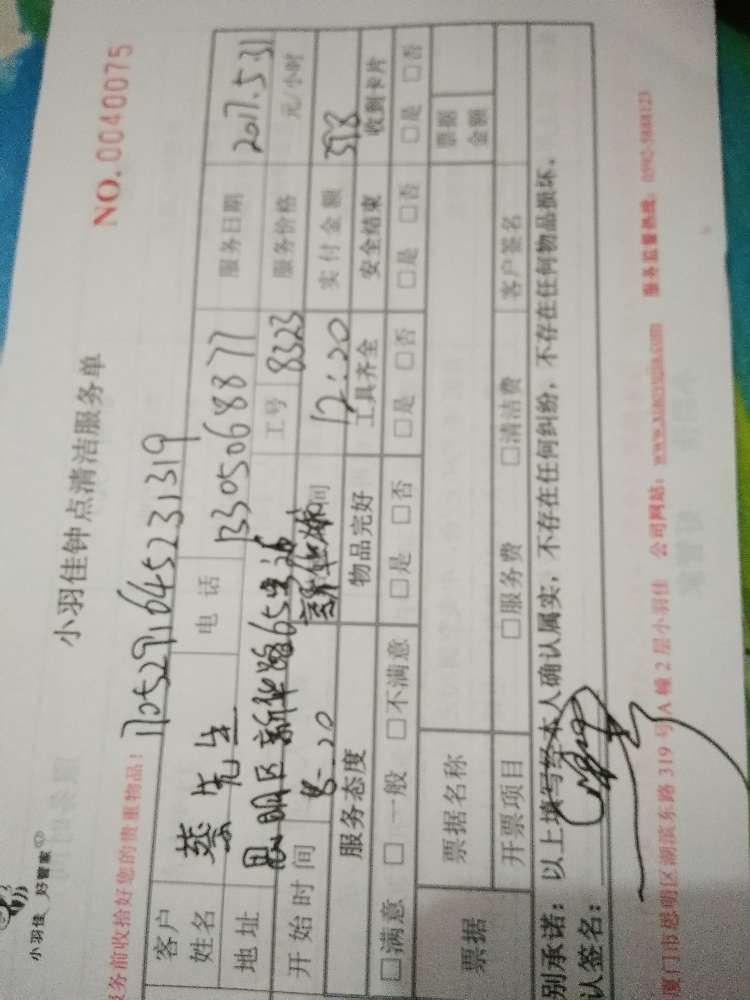 小羽佳 好管家
小羽佳钟点清洁服务单
NO.0040075
服务前收拾好您的贵重物品！
1705291645231319
客户姓名 蔡先生 电话 13305068877 服务日期 2017.5.31
地址 思明区新华路65号 工号 8323 服务价格 元/小时
开始时间 8:20 间 12:20 实付金额 398
服务态度 物品完好 工具齐全 安全结束 收到卡片
□满意 □一般 □不满意 □是 □否 □是 □否 □是 □否 □是 □否
票据 票据名称 票据金额
开票项目 □服务费 □清洁费 客户签名
别承诺：以上填写经本人确认属实，不存在任何纠纷，不存在任何物品损坏。
认签名：
厦门市思明区湖滨东路319号A幢2层小羽佳 公司网站：www.xiaoyujia.com 服务监督热线：0592-5888123